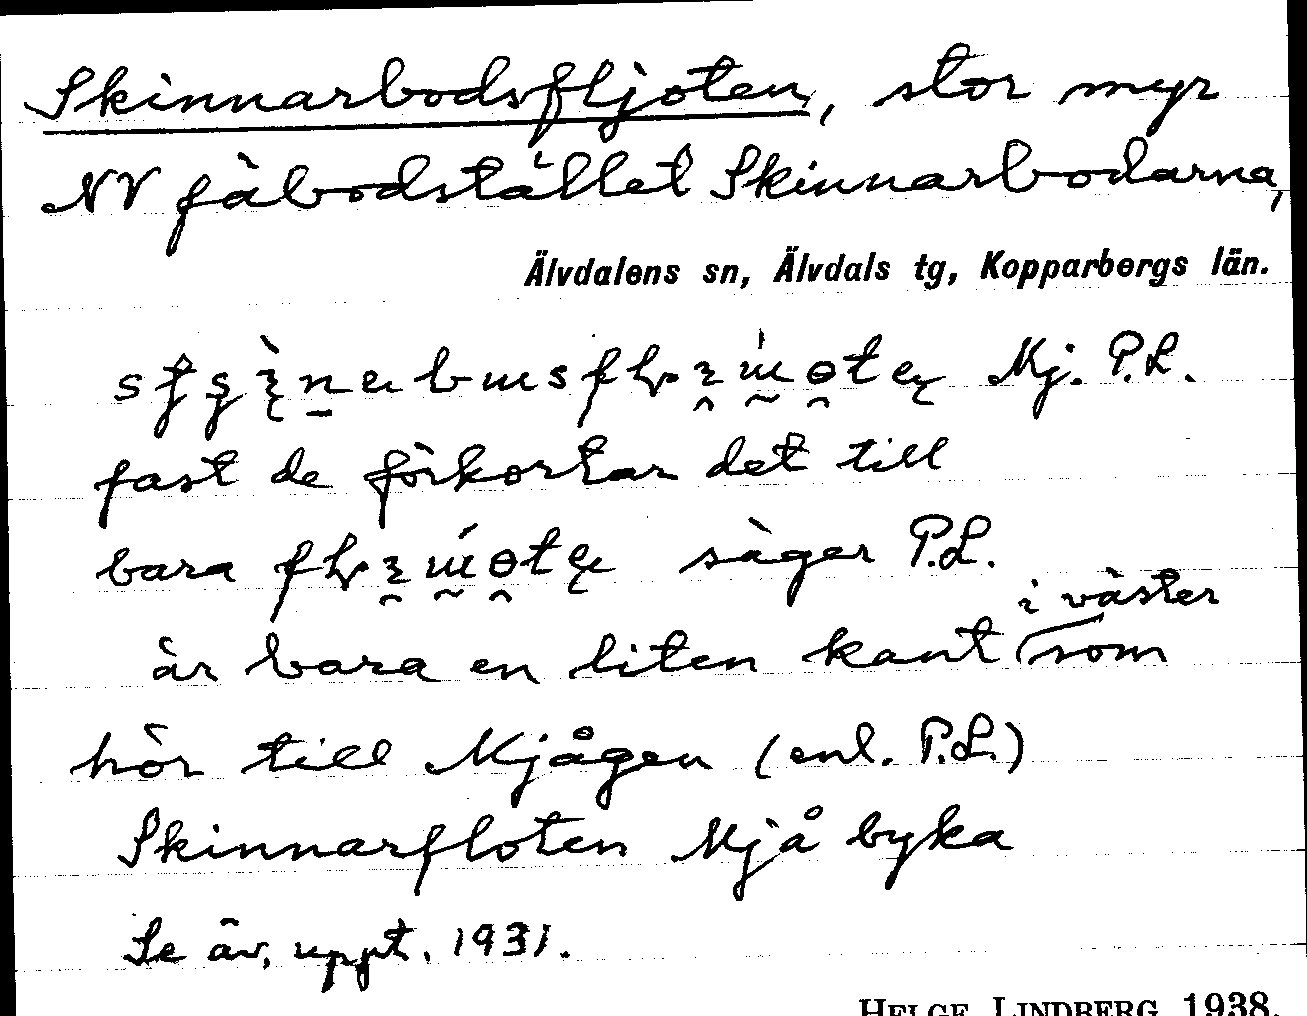 Skinnarbodsfljoten, stor myr
NV fäbodstället Skinnarbodarna,
Älvdalens sn, Älvdals tg, Kopparbergs län.
Mj. P.L.
fast de förkortar det till
bara säger P.L.
i väster
är bara en liten kant som
hör till Mjågen (enl. P.L.)
Skinnarfloten Mjå byka
Se äv. uppt. 1931.
HELGE LINDBERG 1938.